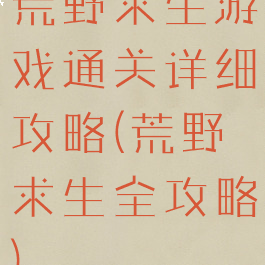 荒野求生游
戏通关详细
攻略(荒野
求生全攻略
)